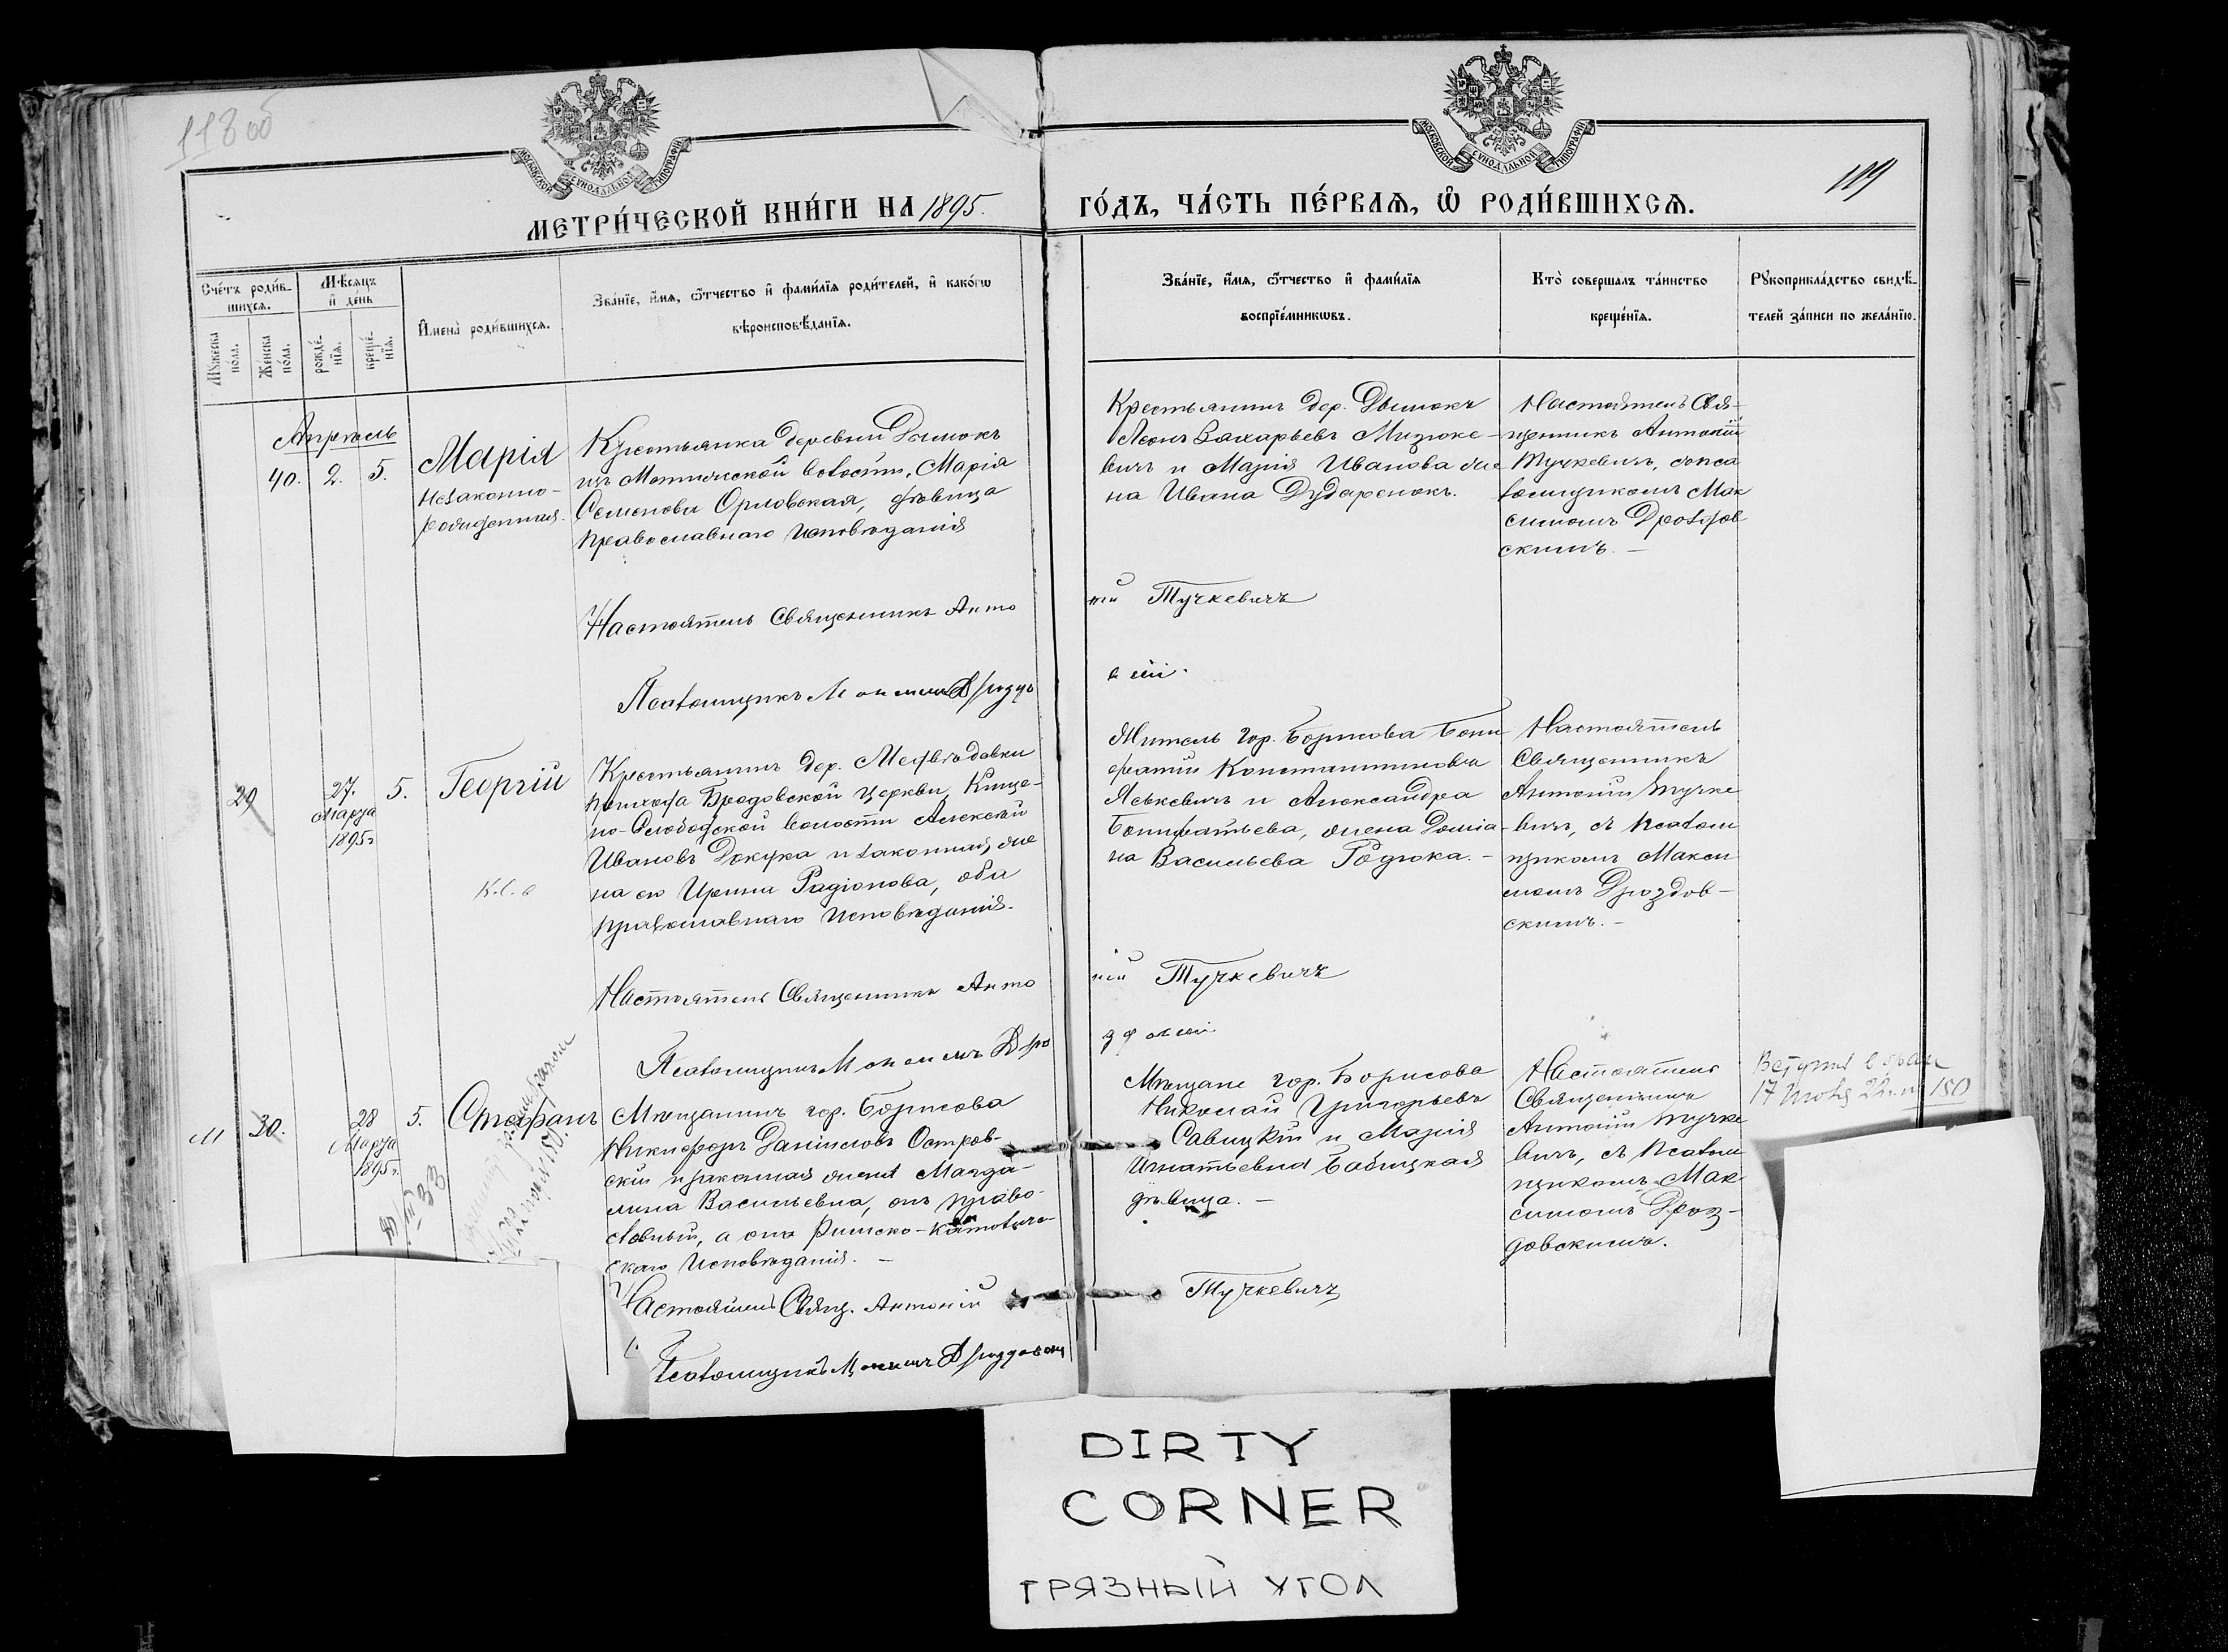 118 об
МОСКОВСКОЙ СѴНОДАЛЬНОЙ ТИПОГРАФІИ
МОСКОВСКОЙ СѴНОДАЛЬНОЙ ТИПОГРАФІИ
119
МЕТРИ́ЧЕСКОЙ КНИ́ГИ НА 1895.
ГО́ДЪ, ЧА́СТЬ ПЕ́РВАѦ, Ѡ҆ РОДИ́ВШИХСѦ.
Сче́тъ роди́в-
шихсѧ.
Мꙋ́жеска
по́ла.
Же́нска
по́ла.
Мѣ́сѧцъ
и҆ де́нь
рожде́-
нїѧ.
креще́-
нїѧ.
И҆мена̀ роди́вшихсѧ.
Зва́нїе, и҆́мѧ, ѻ҆́тчество и҆ фами́лїѧ роди́телей, и҆ како́гѡ
вѣроисповѣ́данїѧ.
Зва́нїе, и҆́мѧ, ѻ҆́тчество и҆ фами́лїѧ
воспрїе́мникѡвъ.
Кто̀ соверша́лъ та́инство
креще́нїѧ.
Рꙋкоприкла́дство свидѣ́-
телей за́писи по жела́нїю.
Апрѣль
40. 2. 5.
Марія
незаконно-
рожденная.
Крестьянка деревни Дымокъ
Семенова Орловская, дѣвица
православнаго исповѣданія
Крестьянинъ дер. Дымокъ
Леонъ Захарьевъ Мизюке-
вичъ и Марія Иванова же
на Ивана Дударенокъ.
Настоятель Свя-
щенникъ Антоній
Тучкевичъ, съ пса
ломщикомъ Мак
симомъ Дроздов
скимъ. —
Настоятель Священникъ Анто
ній Тучкевичъ
Псаломщикъ Максимъ Дроздо
вскій.
29 27. 5.
Марта
1895 г.
Георгій
К.С.В
Крестьянинъ дер. Медвѣдовки
прихода Бродовской церкви, Кище-
но-Слободской волости Алексѣй
Ивановъ Докука и законная же
на его Ирина Радіонова, оба
православнаго исповѣданія.
Житель гор. Борисова Бони
фатій Константиновъ
Яськевичъ и Александра
Бонифатьева, жена Доміа-
на Васильева Родюка. —
Настоятель
Священникъ
Антоній Тучке
вичъ, съ псалом
щикомъ Макси
момъ Дроздов-
скимъ. —
Настоятель Священникъ Анто
ній Тучкевичъ
Псаломщикъ Максимъ Дро
здовскій.
М 30. 28 5.
Марта
1895 г.
Стефанъ
Мѣщанинъ гор. Борисова
Никифоръ Даніиловъ Остров-
скій и законная жена Магда-
лина Васильевна, онъ право-
славный, а она Римско-Католиче-
скаго исповѣданія. —
Мѣщане гор. Борисова
Николай Григорьевъ
Савицкій и Марія
Игнатьевна Бабицкая
дѣвица. —
Настоятель
Священникъ
Антоній Тучке
вичъ, съ псалом
щикомъ Мак
симомъ Дроз-
довскимъ.
17 150
Настоятель Свящ. Антоній
Тучкевичъ
Псаломщикъ Максимъ Дроздовскій
DIRTY
CORNER
ГРЯЗНЫЙ УГОЛ